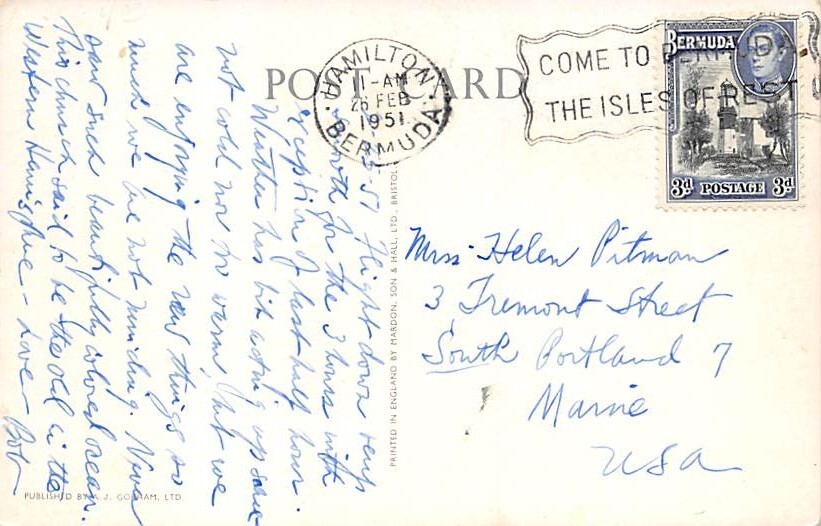 POST CARD
HAMILTON.
11-AM
26 FEB
1951
BERMUDA
COME TO BERMUDA
THE ISLES OF REST
BERMUDA
3d POSTAGE 3d
51 Flight down very
smooth for the 3 hours with
exception of last half hour.
Weather has bit acting up some
not cold nor no warm, but we
are enjoying the new things so
much we are not minding. Never
saw such beautifully colored ocean.
This church said to be the old in the
Western Hemisphere - Love - Bob
Miss Helen Pitman
3 Tremont Street
South Portland 7
Maine
USA
PRINTED IN ENGLAND BY MARDON, SON & HALL, LTD., BRISTOL
PUBLISHED BY A. J. GORHAM, LTD.